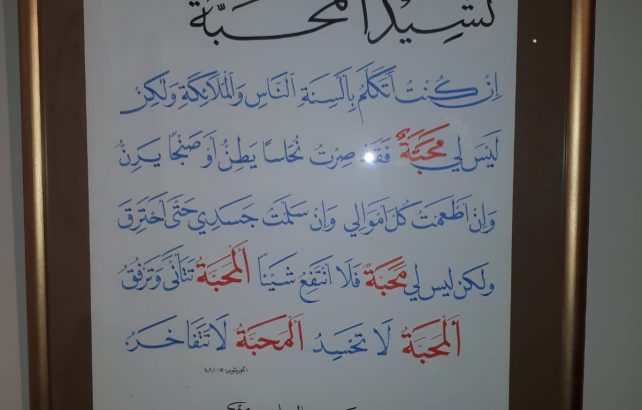 نشيد المحبّة
إِنْ كُنْتُ أَتَكَلَّمُ بِأَلْسِنَةِ النَّاسِ وَالْمَلَائِكَةِ وَلٰكِنْ
لَيْسَ لِي مَحَبَّةٌ فَقَدْ صِرْتُ نُحَاسًا يَطِنُّ أَوْ صَنْجًا يَرِنُّ
وَإِنْ أَطْعَمْتُ كُلَّ أَمْوَالِي وَإِنْ سَلَّمْتُ جَسَدِي حَتَّى أَحْتَرِقَ
وَلٰكِنْ لَيْسَ لِي مَحَبَّةٌ فَلَا أَنْتَفِعُ شَيْئًا اَلْمَحَبَّةُ تَتَأَنَّى وَتَرْفُقُ
اَلْمَحَبَّةُ لَا تَحْسُدُ اَلْمَحَبَّةُ لَا تَتَفَاخَرُ